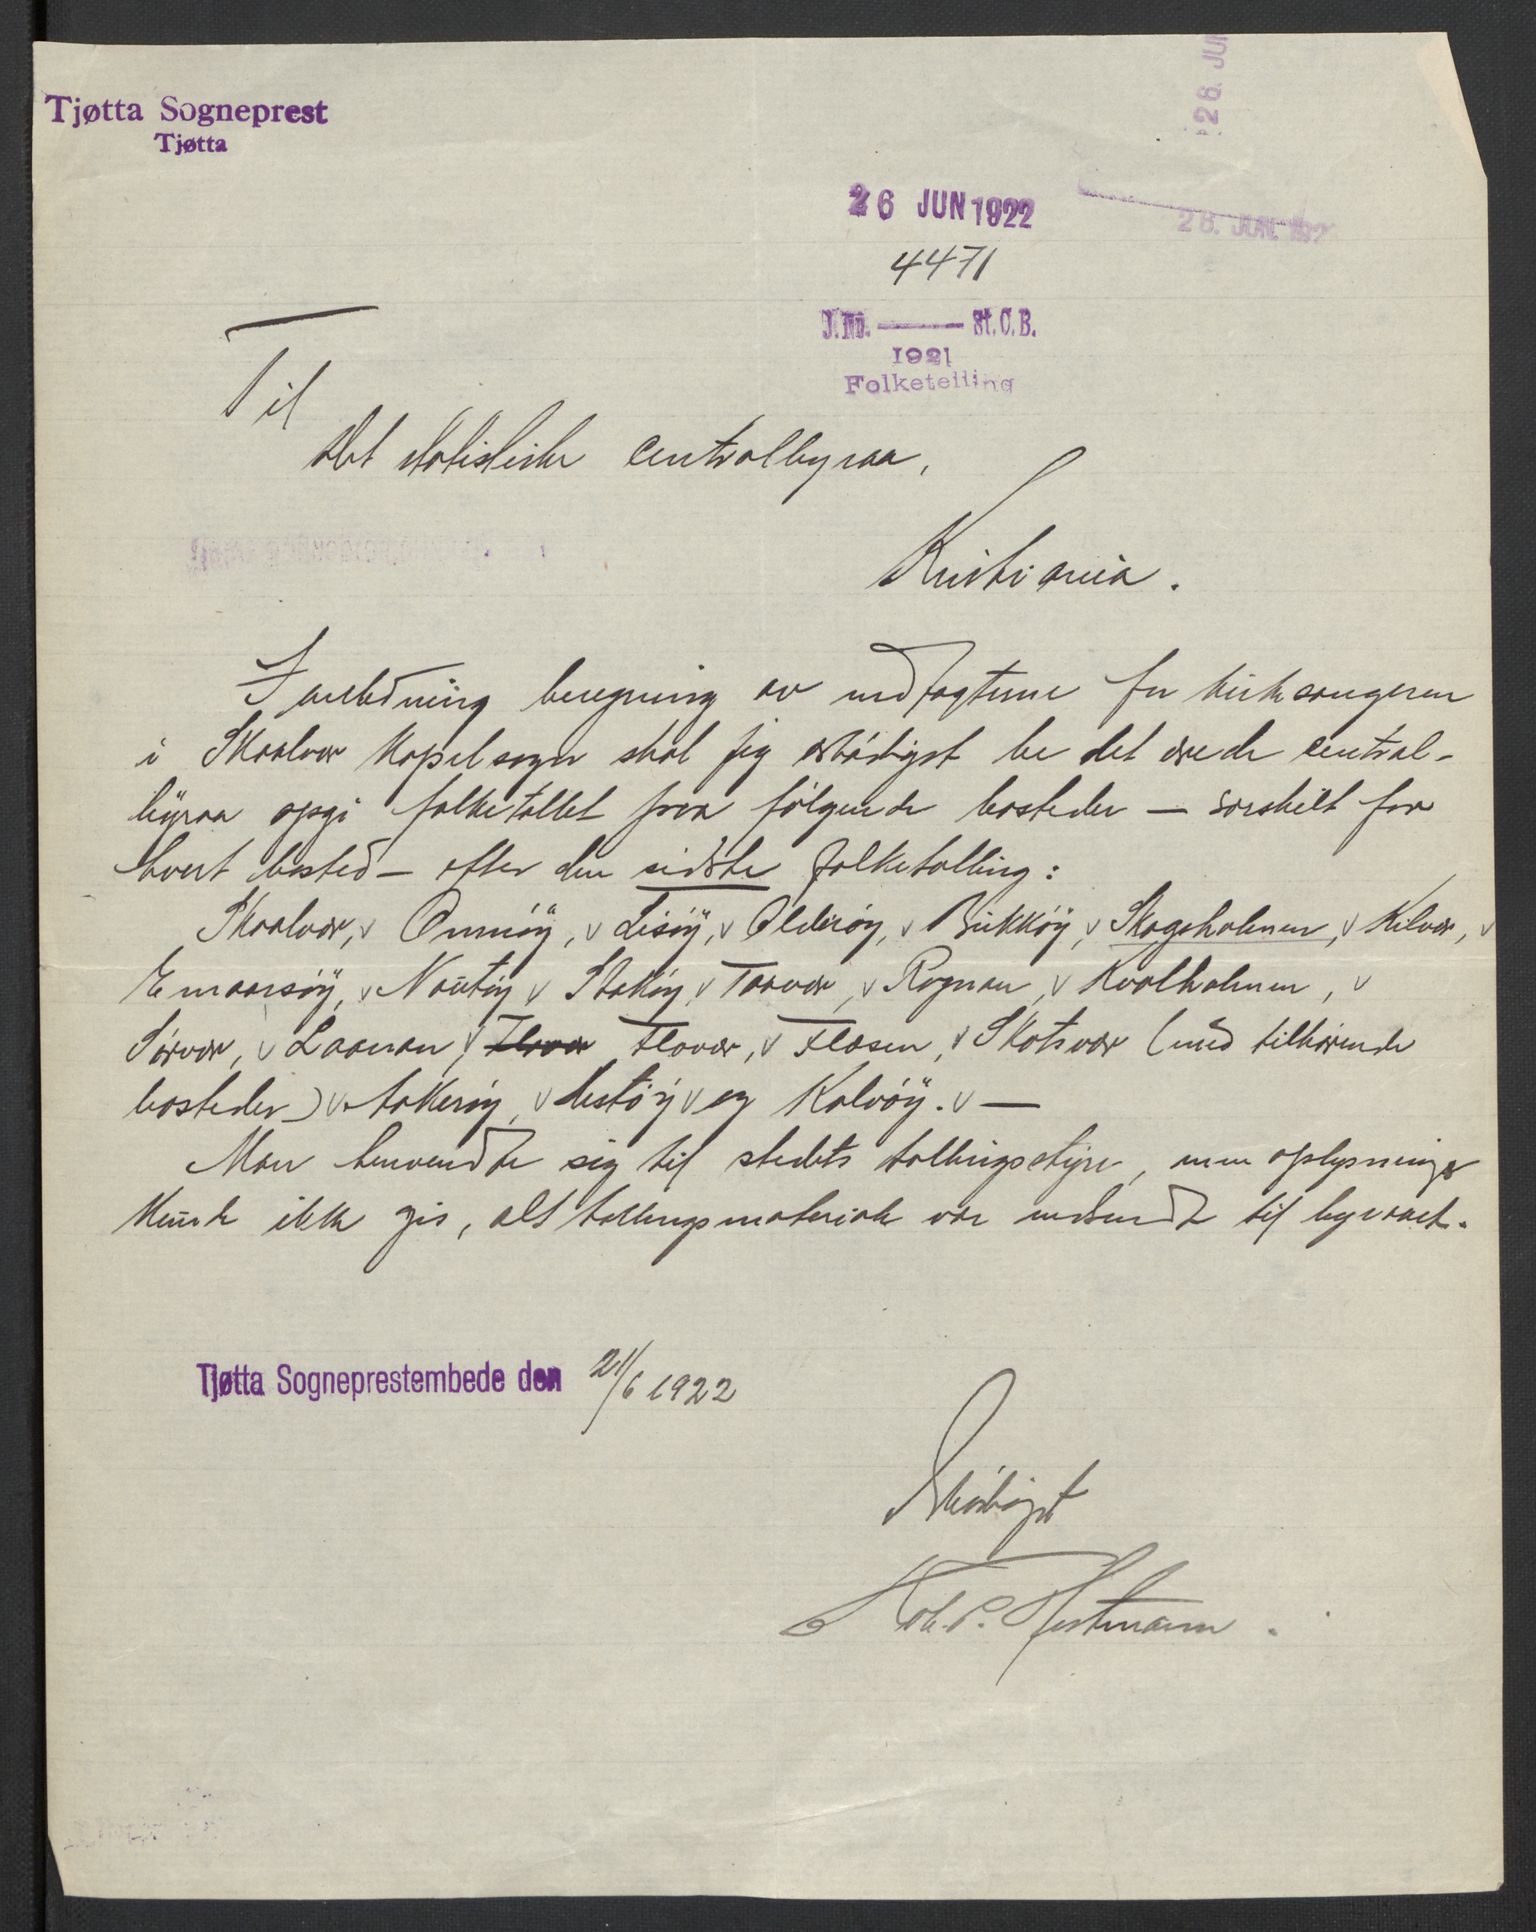 Tjøtta Sogneprest
Tjøtta
26 JUN 1922
26. JUN
26. JUN. 192
4471
J.No. — St.C.B.
1921
Folketelling
Til
det statistiske centralbyraa,
Kristiania.
I anledning beregning av indtægtene for kirkesangeren
i Skaalvær kapelsogn skal jeg ærbödigst be det ærede central-
byraa opgi folketallet paa fölgende bosteder — særskilt for
hvert bosted — efter den sidste folketælling:
Skaalvær, v Önnöy, v Tisöy, v Alderöy, v Bukköy, v Skogsholmen, v Kilvær, v
Emaarsöy, v Nautöy v Stoköy, v Taavær, v Rognan, v Kvalholmen, v
Sörvær, v Laanan, v Flovær Flovær, v Flæsen, v Skotsvær (med tilhörende
bosteder) v, Aakeröy, v Hestöy v og Kalvöy. v —
Man henvendte sig til stedets tællingsstyre, men oplysninger
kunde ikke gis, alt tællingsmateriale var indsendt til byraaet.
Tjøtta Sogneprestembede den 21/6 1922
Ærbödigst
Hestmann.